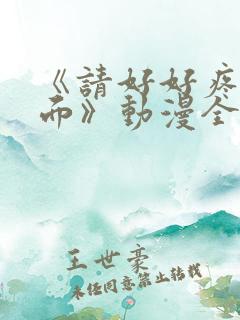 《請好好疼
而》動漫全
王世豪
未经同意禁止转载